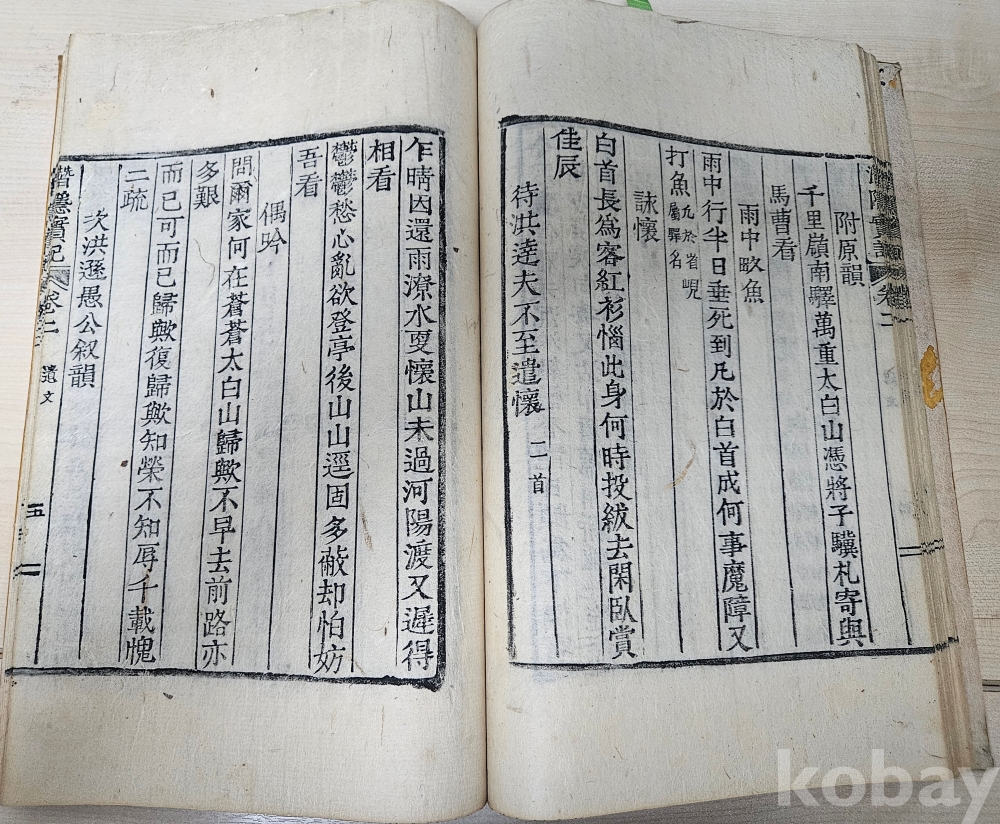 附原韻
千里嶺南驛萬重太白山憑將子驥札寄與
馬曹看
雨中畋魚
雨中行半日垂死到凡於白首成何事魔障又
打魚凡於省峴屬驛名
詠懷
白首長爲客紅衫惱此身何時投紱去閑臥賞
佳辰
待洪逹夫不至遣懷 二首
乍晴因還雨潦水㪅懷山未過河陽渡又遲得
相看
鬱鬱愁心亂欲登亭後山山逕固多蔽却怕妨
吾看
偶吟
問爾家何在蒼蒼太白山歸歟不早去前路亦
多艱
而已可而已歸歟復歸歟知榮不知辱千載愧
二疏
次洪遯愚公叙韻
潛隱實記 卷二 遺文 五
kobay